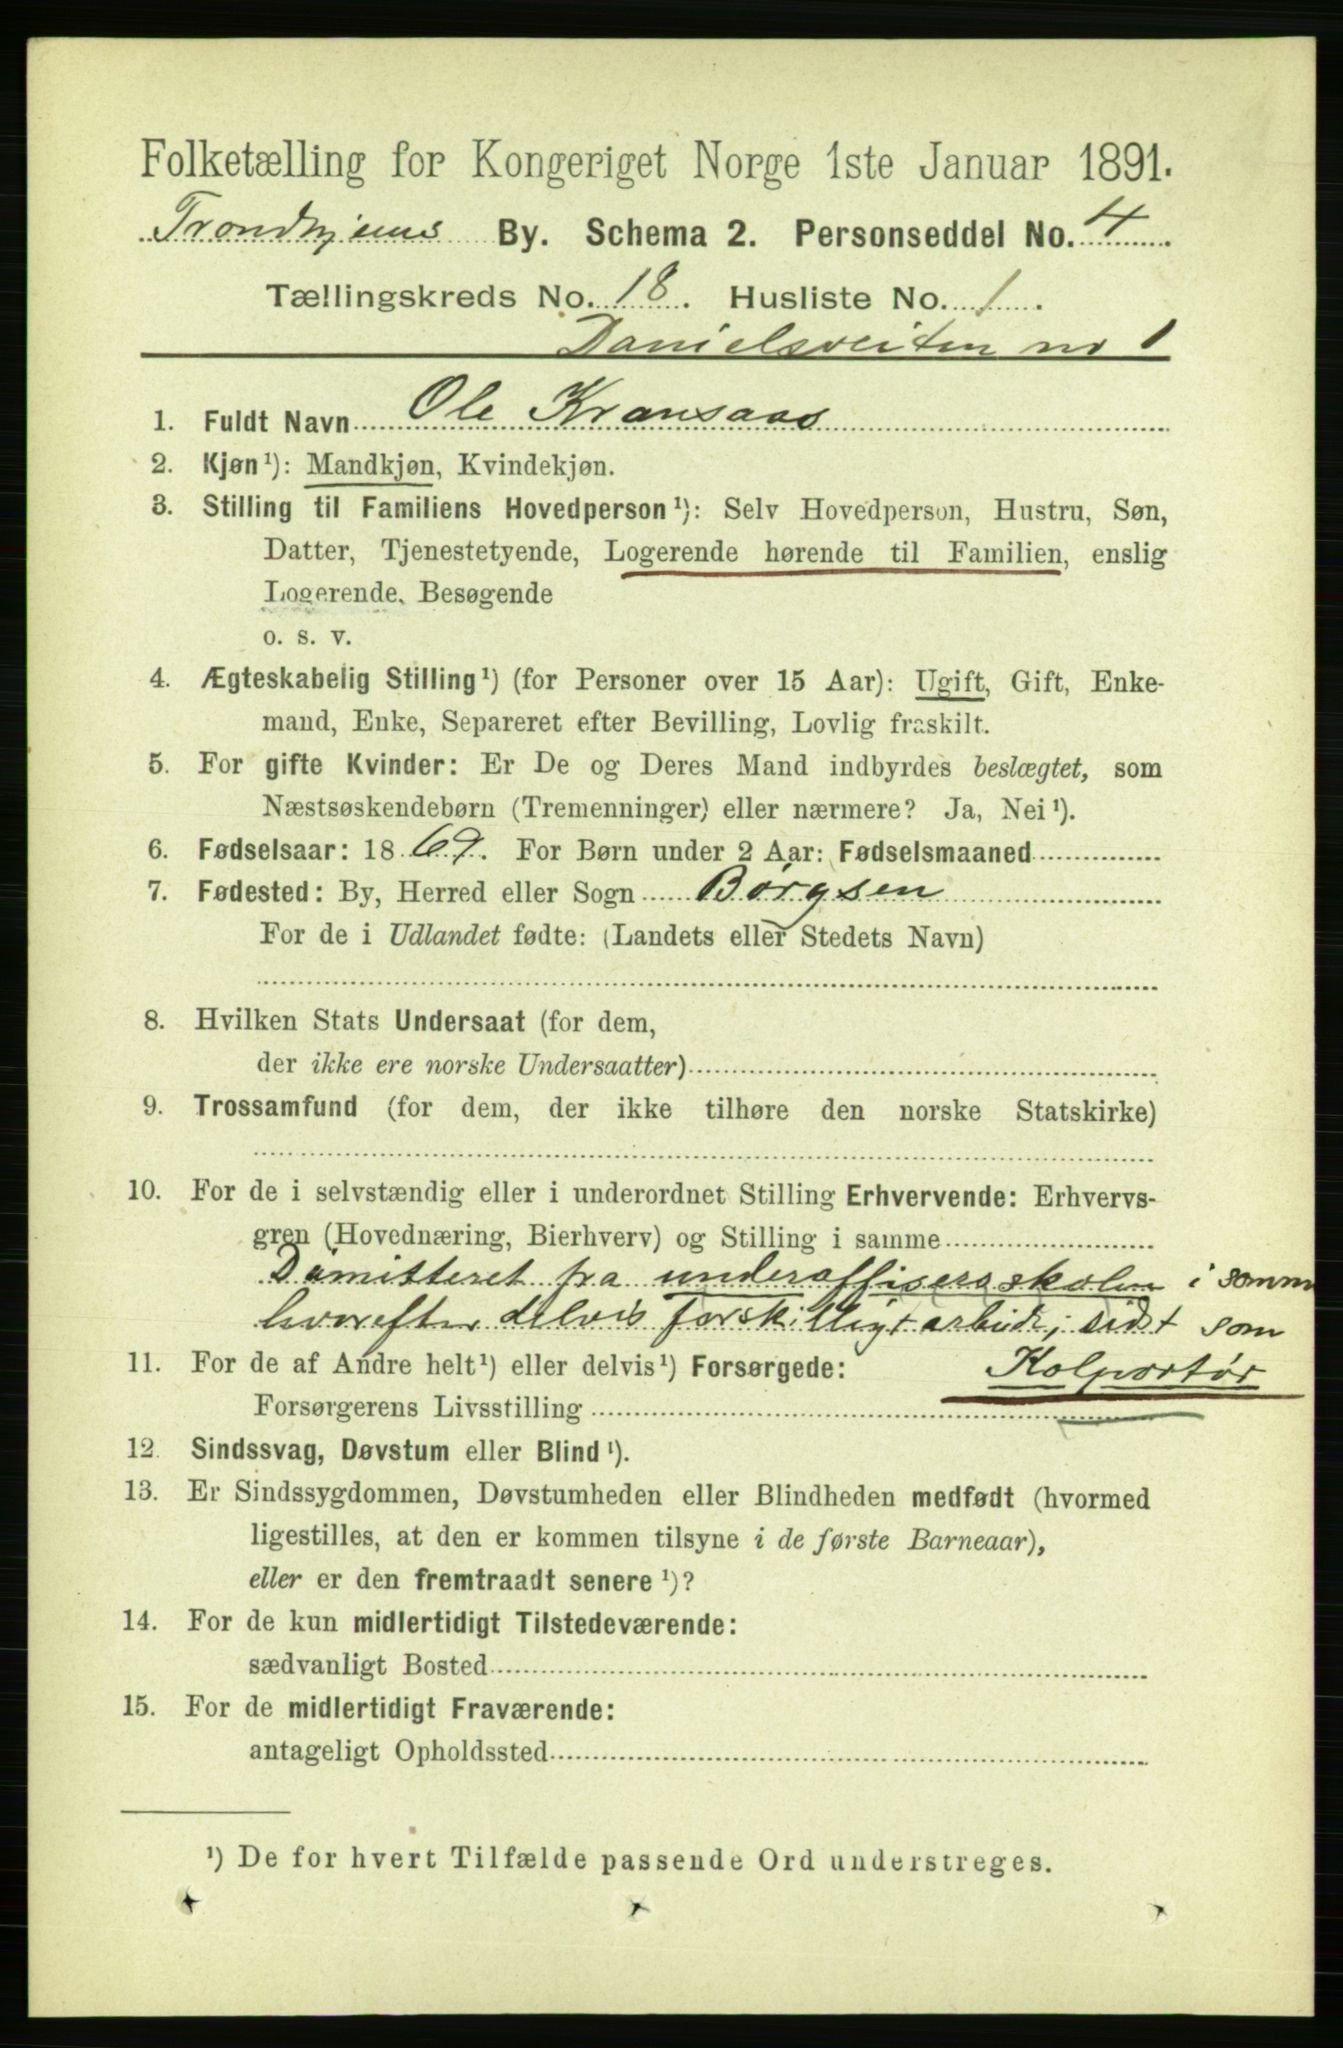 Folketælling for Kongeriget Norge 1ste Januar 1891.
Trondhjems By. Schema 2. Personseddel No. 4
Tællingskreds No. 18. Husliste No. 1.
Danielsveiten no 1
1. Fuldt Navn Ole Kransaas
2. Kjøn¹): Mandkjøn, Kvindekjøn.
3. Stilling til Familiens Hovedperson¹): Selv Hovedperson, Hustru, Søn,
Datter, Tjenestetyende, Logerende hørende til Familien, enslig
Logerende, Besøgende
o. s. v.
4. Ægteskabelig Stilling¹) (for Personer over 15 Aar): Ugift, Gift, Enke-
mand, Enke, Separeret efter Bevilling, Lovlig fraskilt.
5. For gifte Kvinder: Er De og Deres Mand indbyrdes beslægtet, som
Næstsøskendebørn (Tremenninger) eller nærmere? Ja, Nei¹).
6. Fødselsaar: 1869. For Børn under 2 Aar: Fødselsmaaned
7. Fødested: By, Herred eller Sogn Børgsen
For de i Udlandet fødte: (Landets eller Stedets Navn)
8. Hvilken Stats Undersaat (for dem,
der ikke ere norske Undersaatter)
9. Trossamfund (for dem, der ikke tilhøre den norske Statskirke)
10. For de i selvstændig eller i underordnet Stilling Erhvervende: Erhvervs-
gren (Hovednæring, Bierhverv) og Stilling i samme
Dimitteret fra underoffisersskolen i somm
hvorefter delvis forskilligt arbeide, sidst som
11. For de af Andre helt¹) eller delvis¹) Forsørgede: Kolportør
Forsørgerens Livsstilling
12. Sindssvag, Døvstum eller Blind¹).
13. Er Sindssygdommen, Døvstumheden eller Blindheden medfødt (hvormed
ligestilles, at den er kommen tilsyne i de første Barneaar),
eller er den fremtraadt senere¹)?
14. For de kun midlertidigt Tilstedeværende:
sædvanligt Bosted
15. For de midlertidigt Fraværende:
antageligt Opholdssted
¹) De for hvert Tilfælde passende Ord understreges.